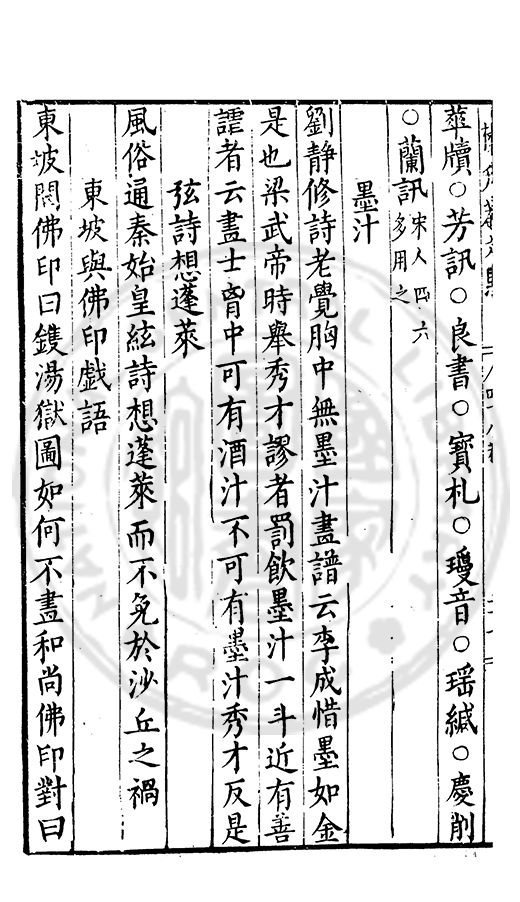 華牘○芳訊○良書○寶札○瓊音○瑶緘○慶削
○蘭訊宋人四六多用之
墨汁
劉静修詩老覺胸中無墨汁畫譜云李成惜墨如金
是也梁武帝時舉秀才謬者罰飲墨汁一斗近有善
謔者云畫士胷中可有酒汁不可有墨汁秀才反是
弦詩想蓬萊
風俗通秦始皇絃詩想蓬萊而不免於沙丘之禍
東坡與佛印戯語
東坡問佛印曰鑊湯獄圖如何不畫和尚佛印對曰